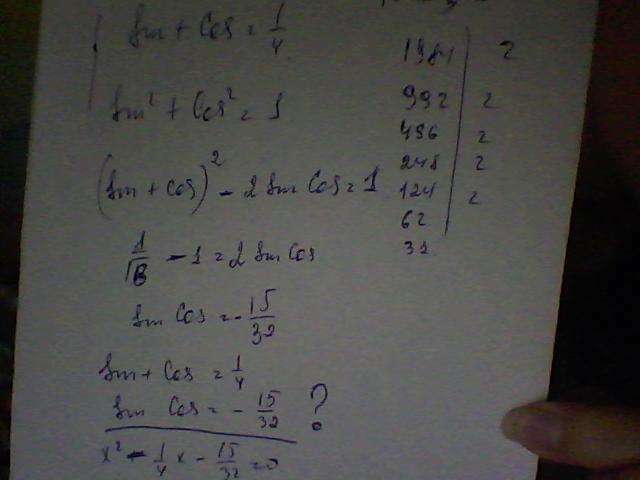 sin + cos = 1/4
sin² + cos² = 1
(sin + cos)² - 2 sin cos = 1
1/16 - 1 = 2 sin cos
sin cos = - 15/32
sin + cos = 1/4
sin cos = - 15/32 ?
x² - 1/4 x - 15/32 = 0
1984 | 2
992 | 2
496 | 2
248 | 2
124 | 2
62
31